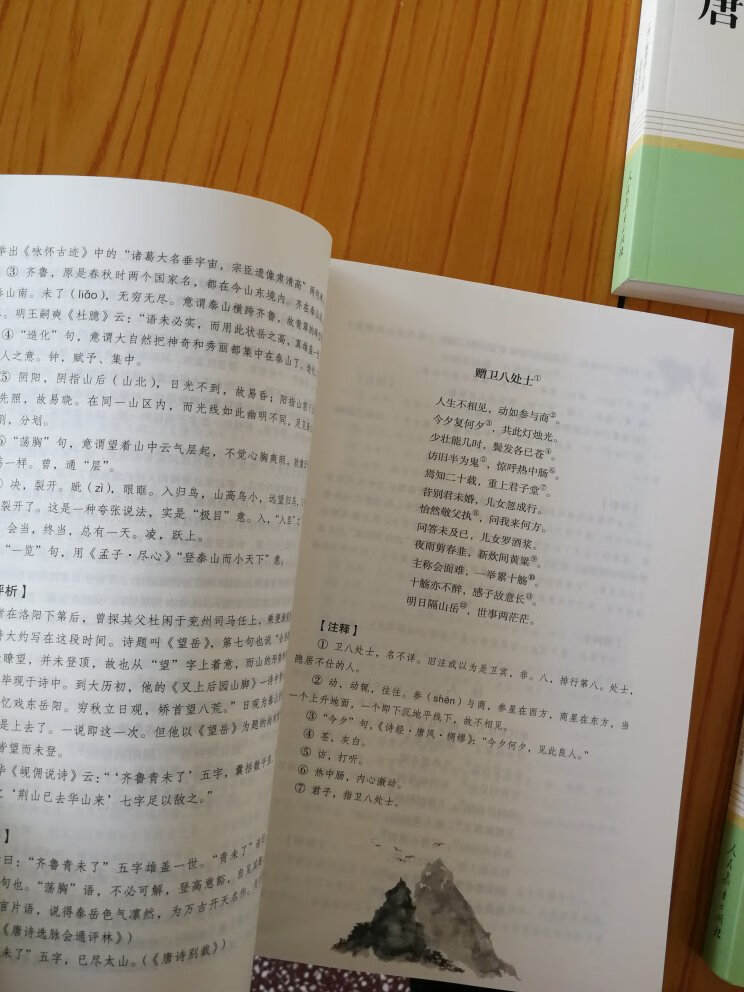 举出《咏怀古迹》中的“诸葛大名垂宇宙，宗臣遗像肃清高”
③ 齐鲁，原是春秋时两个国家名，都在今山东境内。齐在泰山
泰山南。未了（liǎo），无穷无尽。意谓泰山横跨齐鲁，故青翠的
明王嗣奭《杜臆》云：“语未必实，而用此状岳之高，真雄盖一
④ “造化”句，意谓大自然把神奇和秀丽都集中在泰山了。
人之意。钟，赋予、集中。
⑤ 阴阳，阴指山后（山北），日光不到，故易昏；阳指山前
先照，故易晓。在同一山区内，而光线如此幽明不同，足见
割，分划。
“荡胸”句，意谓望着山中云气层起，不觉心胸爽朗，
一样。曾，通“层”。
决，裂开。眦（zì），眼眶。入归鸟，山高鸟小，远望归鸟，
裂开了。这是一种夸张说法，实是“极目”意。入，“入目”之
会当，终当，总有一天。凌，跃上。
“一览”句，用《孟子·尽心》“登泰山而小天下”意。
评析】
者在洛阳下第后，曾探其父杜闲于兖州司马任上，乘便
诗大约写在这段时间。诗题叫《望岳》，第七句也说“会
瞭望，并未登顶，故也从“望”字上着意，而山的形象
毕现于诗中。到大历初，他的《又上后园山脚》一诗中
忆戏东岳阳。穷秋立日观，矫首望八荒。”日观为泰山
是上去了。一说即这一次。但他以《望岳》为题的
皆望而未登。
华《岘佣说诗》云：“‘齐鲁青未了’五字，囊括数千里，
‘荆山已去华山来’七字足以敌之。”
】
曰：“齐鲁青未了”五字雄盖一世。“青未了”
句也。“荡胸”语，不必可解，登高意豁，自见
言片语，说得泰岳色气凛然，为万古开天名作。
《唐诗选脉会通评林》）
未了”五字，已尽太山。（《唐诗别裁》）
赠卫八处士①
人生不相见，动如参与商②。
今夕复何夕③，共此灯烛光。
少壮能几时，鬓发各已苍④。
访旧半为鬼⑤，惊呼热中肠⑥。
焉知二十载，重上君子堂⑦。
昔别君未婚，儿女忽成行。
怡然敬父执⑧，问我来何方。
问答未及已，儿女罗酒浆。
夜雨剪春韭，新炊间黄粱⑨。
主称会面难，一举累十觞⑩。
十觞亦不醉，感子故意长⑪。
明日隔山岳⑫，世事两茫茫。
【注释】
① 卫八处士，名不详。旧注或以为是卫宾，非。八，排行第八。处士，
隐居不仕的人。
② 动，动辄，往往。参（shēn）与商，参星在西方，商星在东方，当
一个上升地面，一个即下沉地平线下，故不相见。
③ “今夕”句，《诗经·唐风·绸缪》：“今夕何夕，见此良人。”
④ 苍，灰白。
⑤ 访，打听。
⑥ 热中肠，内心激动。
⑦ 君子，指卫八处士。
唐
人民教育出版社
人民教育出版社